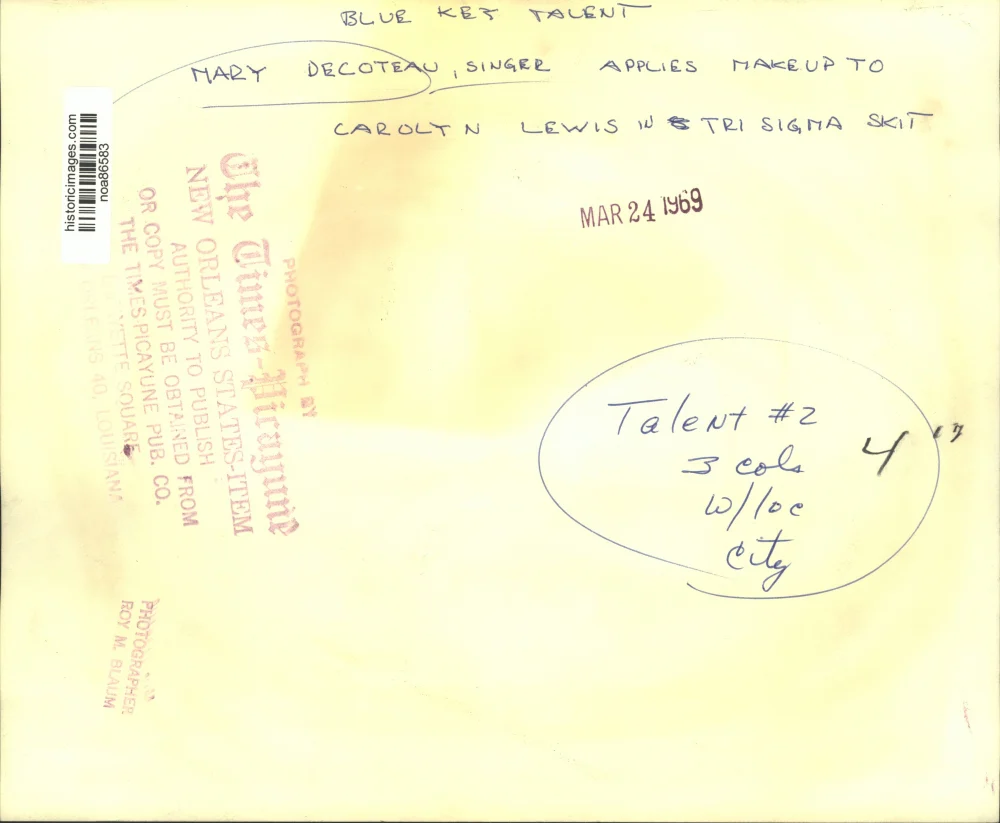 BLUE KEY TALENT
MARY DECOTEAU, SINGER APPLIES MAKEUP TO
CAROLYN LEWIS IN TRI SIGMA SKIT
historicimages.com
noa86583
MAR 24 1969
PHOTOGRAPH BY
The Times-Picayune
NEW ORLEANS STATES-ITEM
AUTHORITY TO PUBLISH
OR COPY MUST BE OBTAINED FROM
THE TIMES-PICAYUNE PUB. CO.
SQUARE
40, LOUISIANA
Talent #2
3 cols
w/loc
City
4
PHOTOGRAPHER
ROY M. BLAUM